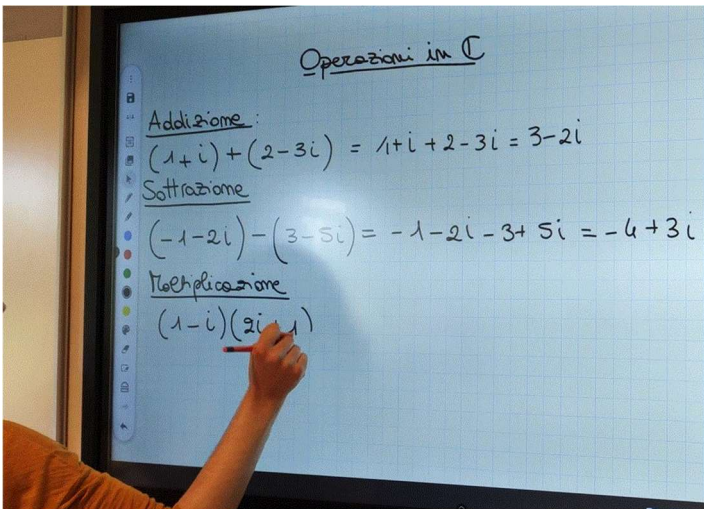 Operazioni in ℂ
Addizione:
(1+i)+(2-3i) = 1+i+2-3i = 3-2i
Sottrazione
(-1-2i)-(3-5i) = -1-2i-3+5i = -4+3i
Moltiplicazione
(1-i)(2i+1)